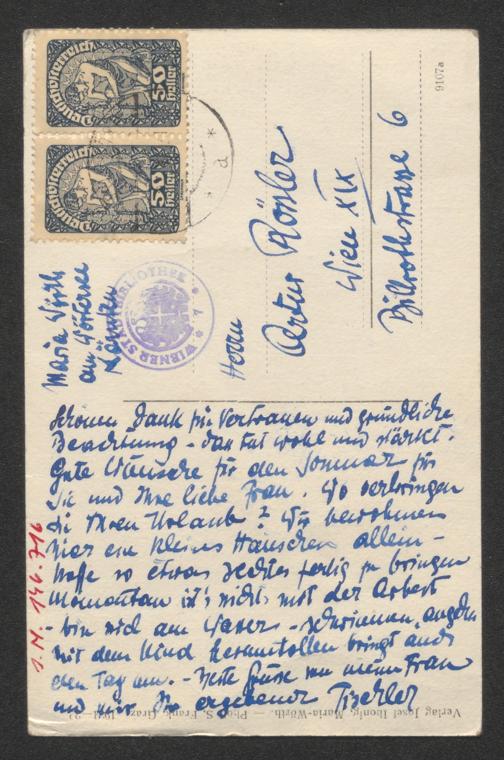 Deutschösterreich
50
Heller
Deutschösterreich
50
Heller
a
9107a
Herrn
Artur Rösler
Wien XIX
Billrothstrasse 6
WIENER STADTBIBLIOTHEK
Maria Wörth
am Wörtersee
Kärnten
Schönen Dank für Vertrauen und gründliche
Beachtung – das tut wohl und stärkt.
Gute Wünsche für den Sommer für
Sie und Ihre liebe Frau. Wo verbringen
Sie Ihren Urlaub? Wir bewohnen
hier ein kleines Häuschen allein –
hoffe so etwas rechtes fertig zu bringen
Momentan ist's nichts mit der Arbeit
– bin viel am Wasser – schwimmen, angeln
mit dem Kind herumtollen bringt auch
den Tag um. – Beste Grüsse von meiner Frau
und mir Ihr ergebener Tischler
I.N. 146.716
Verlag Josef Ibounig, Maria-Wörth. — Phot. S. Frank, Graz.